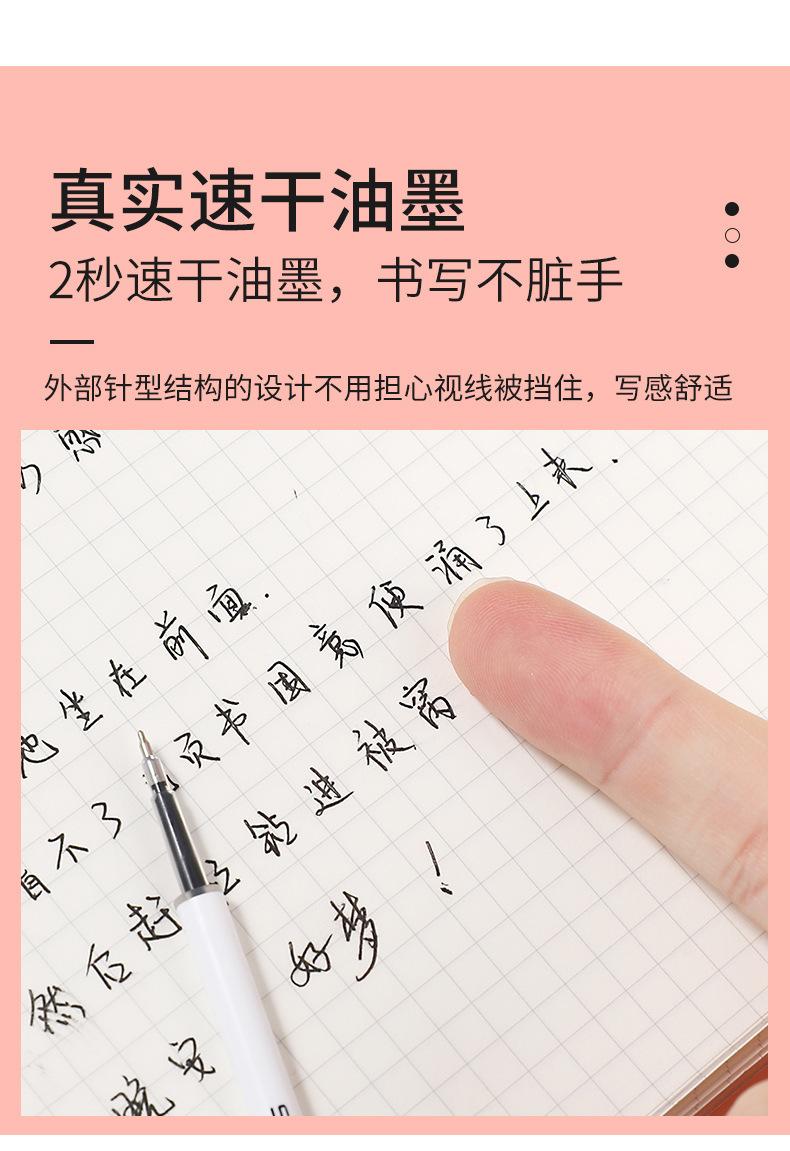 真实速干油墨
2秒速干油墨，书写不脏手
外部针型结构的设计不用担心视线被挡住，写感舒适
涌了上来.
坐在前面.
页书 困意便
不了
钻进被窝
然后赶
好梦！
晚安